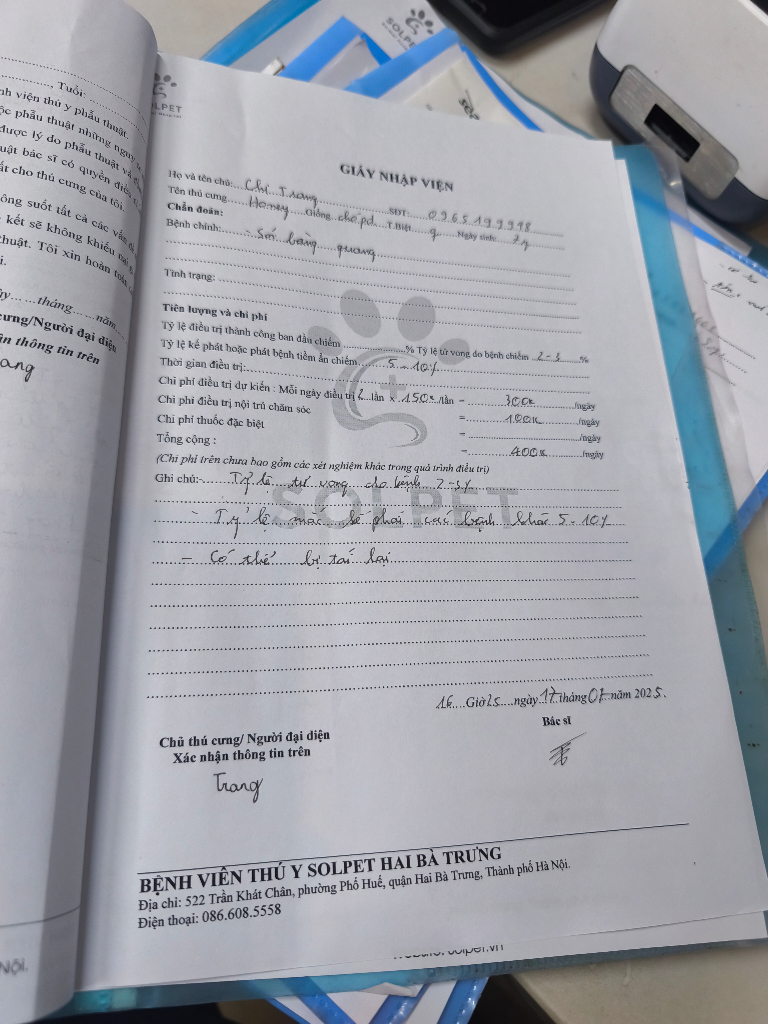 SOLPET
..., Tuổi: ...
nh viện thú y phẫu thuật.
ộc phẫu thuật những nguy
được lý do phẫu thuật và
uật bác sĩ có quyền điều
ất cho thú cưng của tôi.
ông suốt tất cả các vấn đề
kết sẽ không khiếu
thuật. Tôi xin hoàn toàn
i.
ày......tháng......năm...
cưng/Người đại diện
ận thông tin trên
ang
Nội.
LPET
GIẤY NHẬP VIỆN
Họ và tên chủ: Chị Trang SĐT: 0965199998
Tên thú cưng Honey Giống chó pd T.Biệt g Ngày sinh: 2y
Chẩn đoán:
Bệnh chính: - Sỏi bàng quang
Tình trạng:
Tiên lượng và chi phí
Tỷ lệ điều trị thành công ban đầu chiếm ...% Tỷ lệ tử vong do bệnh chiếm 2-3 %
Tỷ lệ kế phát hoặc phát bệnh tiềm ẩn chiếm 5-10%
Thời gian điều trị:
Chi phí điều trị dự kiến : Mỗi ngày điều trị 2 lần x 150k /lần = 300k /ngày
Chi phí điều trị nội trú chăm sóc = 100k /ngày
Chi phí thuốc đặc biệt = /ngày
Tổng cộng : = 400k /ngày
(Chi phí trên chưa bao gồm các xét nghiệm khác trong quá trình điều trị)
Ghi chú:- Tỷ lệ tử vong cho bệnh 2-3%
- Tỷ lệ mắc kế phát các bệnh khác 5-10%
- Có thể bị tái lại
SOLPET
16 Giờ 15 ngày 17 tháng 07 năm 2025.
Bác sĩ
Chủ thú cưng/ Người đại diện
Xác nhận thông tin trên
Trang
BỆNH VIỆN THÚ Y SOLPET HAI BÀ TRƯNG
Địa chỉ: 522 Trần Khát Chân, phường Phố Huế, quận Hai Bà Trưng, Thành phố Hà Nội.
Điện thoại: 086.608.5558
Website: solpet.vn